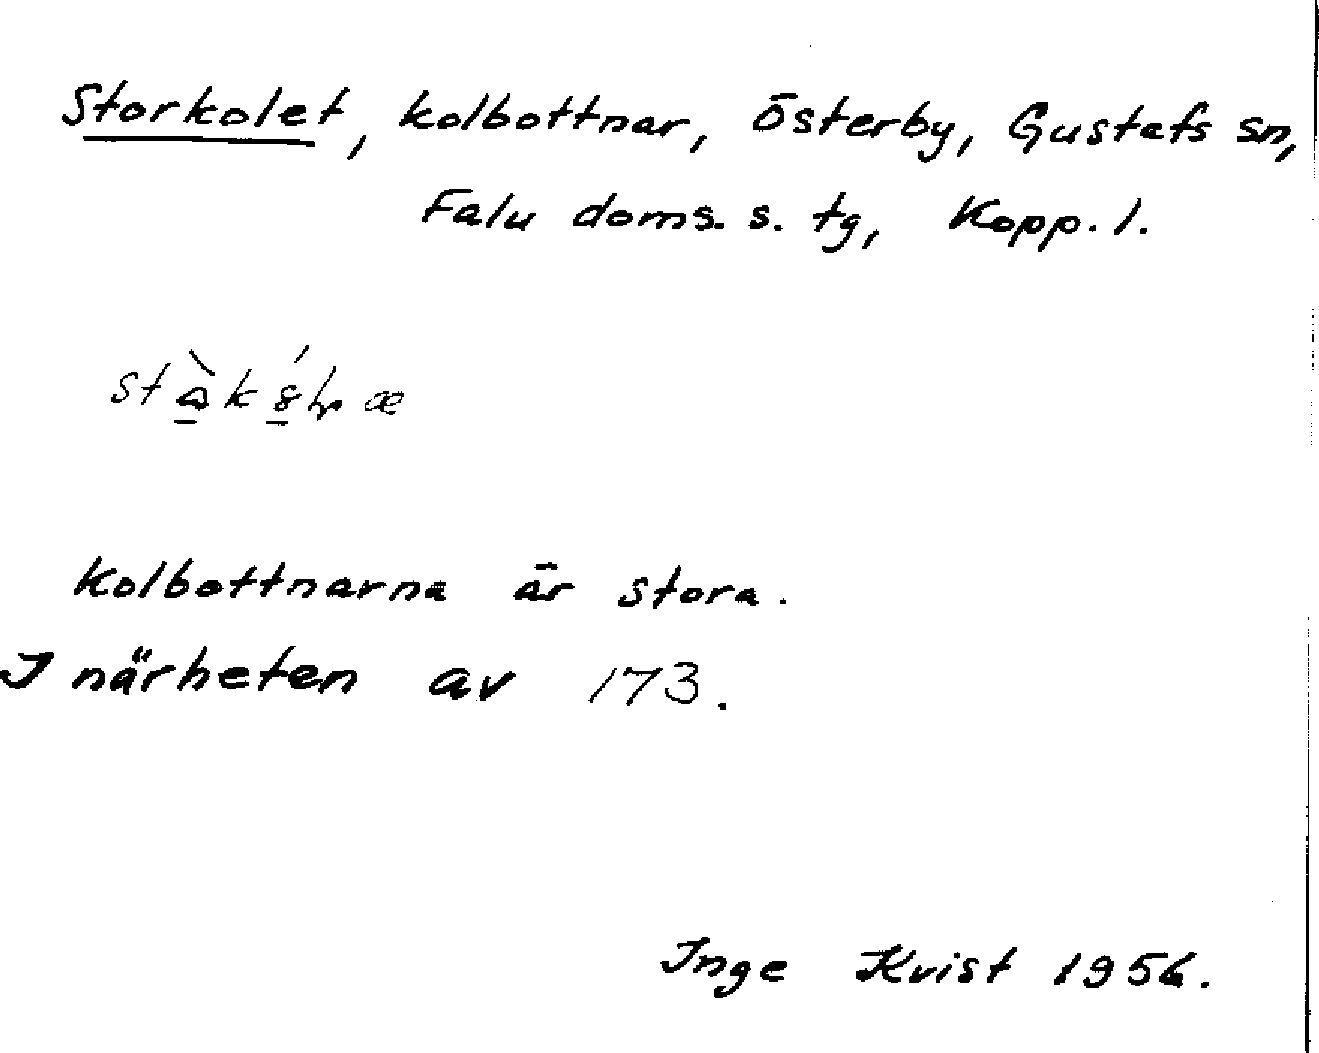 Storkolet, kolbottnar, Österby, Gustafs sn,
Falu doms. s. tg, Kopp. l.
Kolbottnarna är stora.
I närheten av 173.
Inge Kvist 1956.